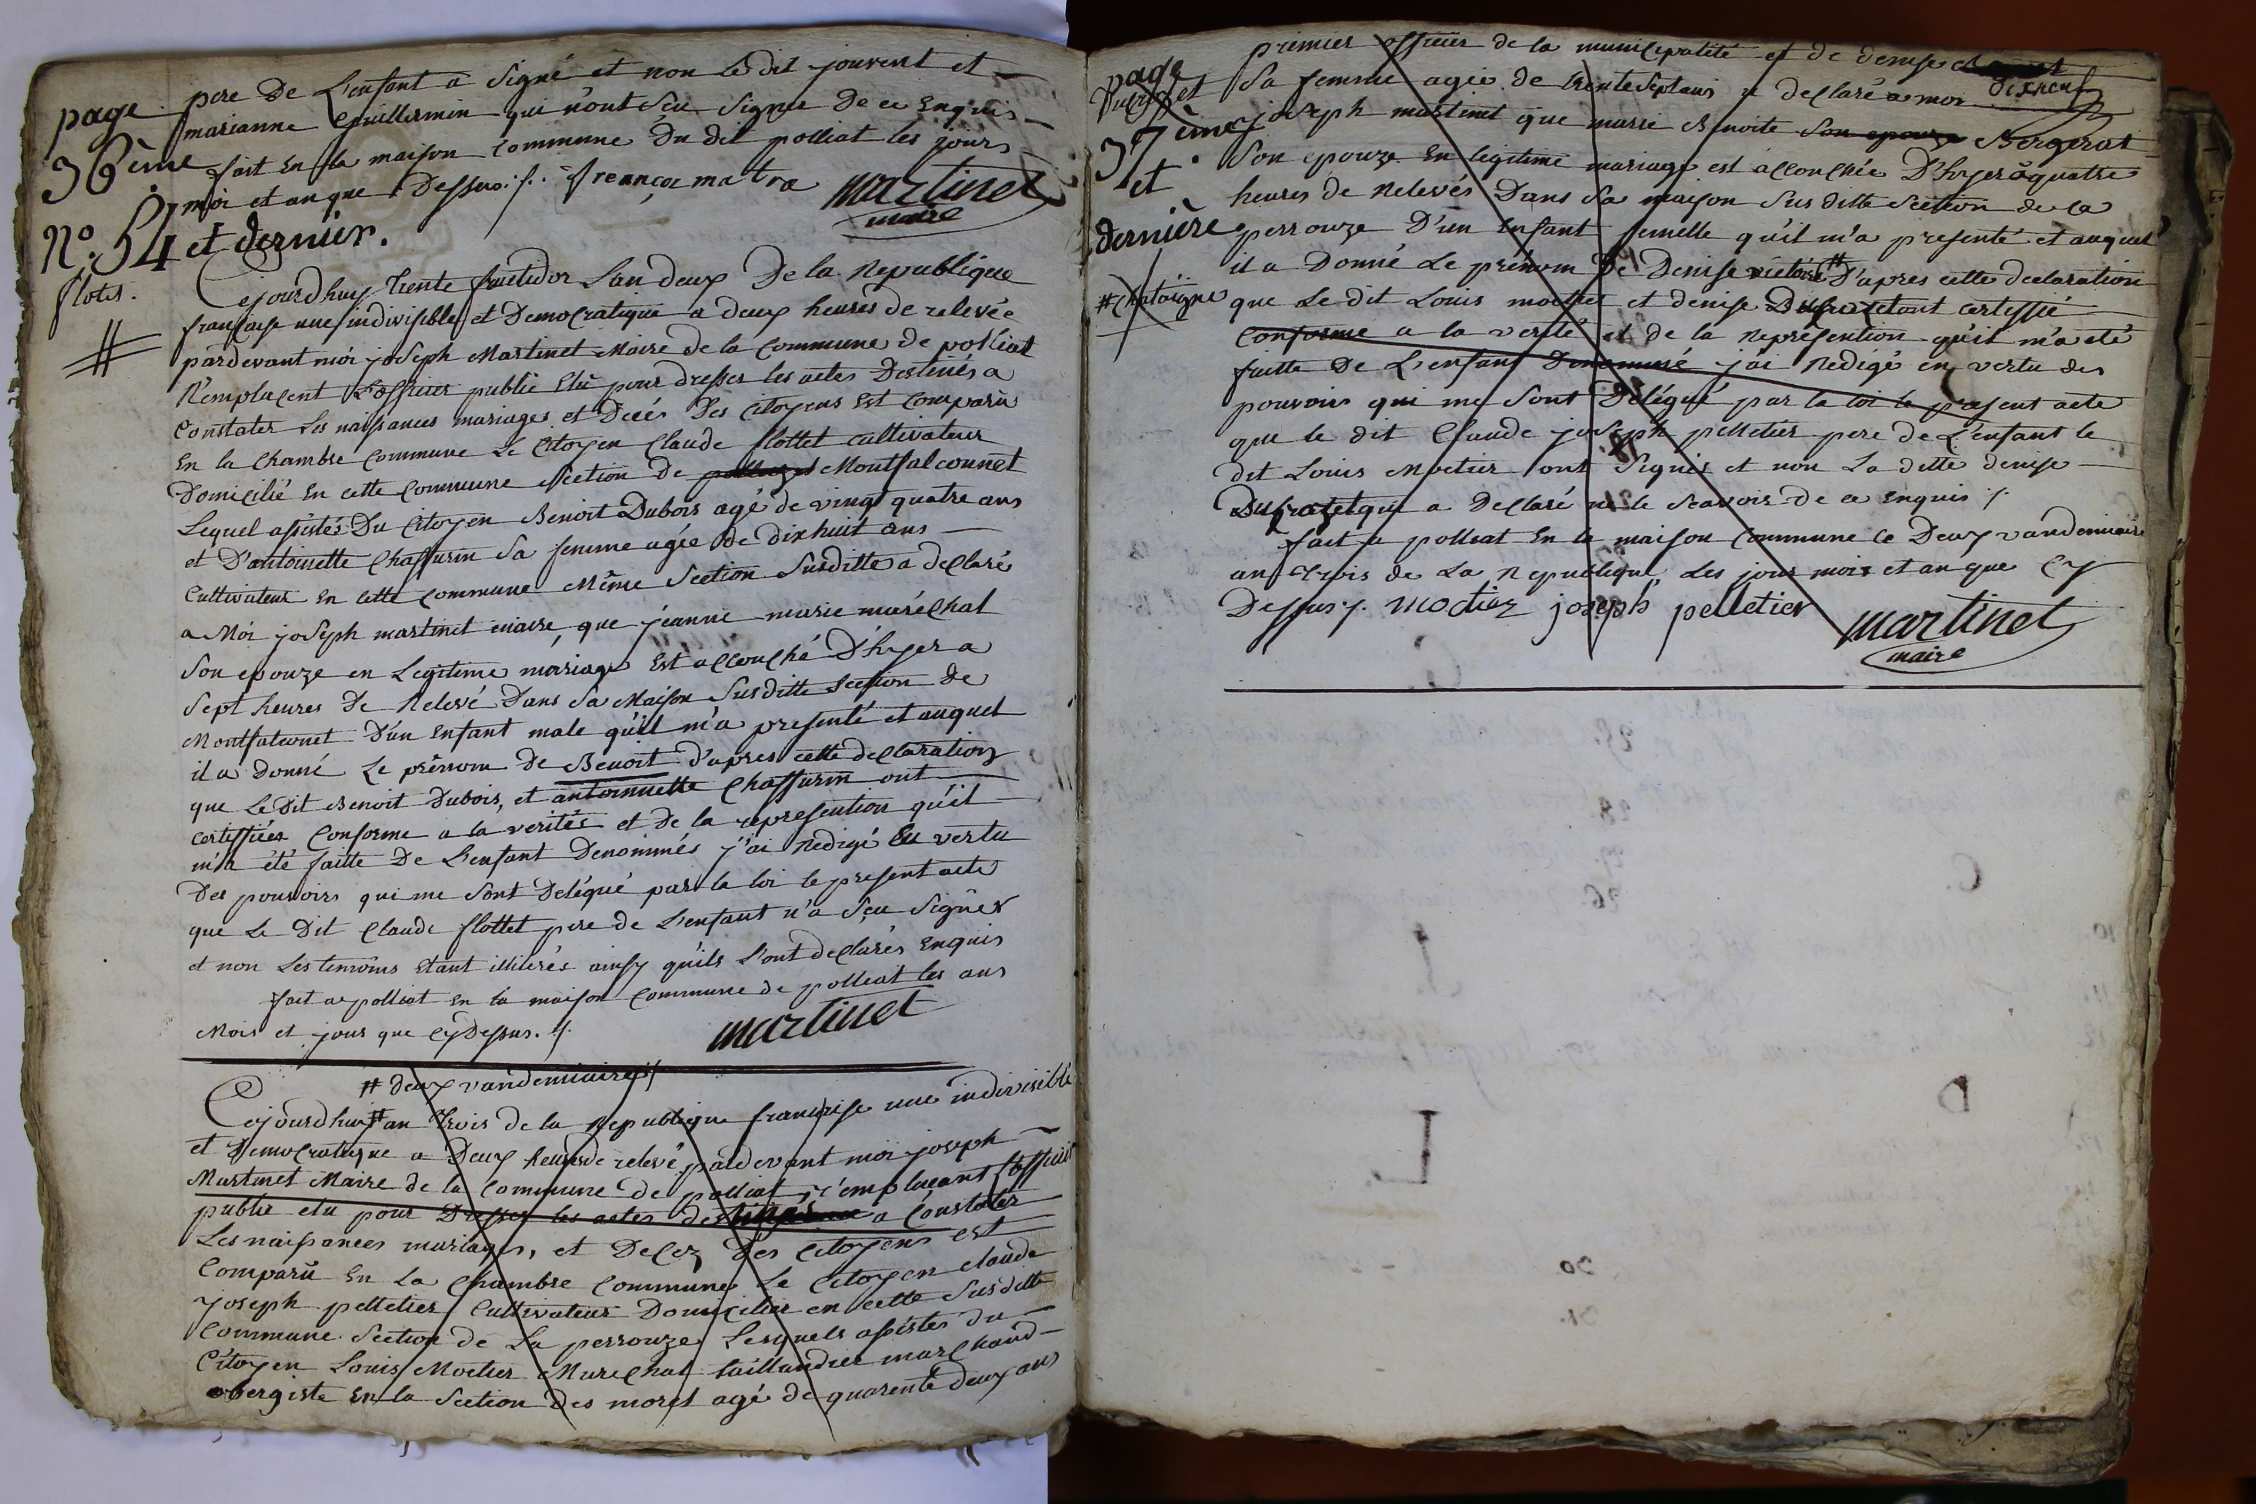 page 36ème
pere de L'enfant a Signé et non Le dit jouvent et
marianne Guillermin qui n'ont Sçu Signer de ce Enquis
fait En la maison Commune Du dit polliat les jours
moi et an que Dessus ./. françoi matra martinet
maire
N.º 54 et dernier.
flotet.
#
Cejourd'huy trente fructidor L'an deux De la Republique
française une indivisible et Democratique a deux heures de relevée
pardevant moi joseph Martinet Maire de la Commune de polliat
Remplacent L'officier public Elû pour dresser les actes Destinés a
Constater Les naissances mariages et Decés Des Citoyens Est Comparu
En la Chambre Commune Le Citoyen Claude flottet cultivateur
Domicilié En cette Commune Section de Montfalconnet
Lequel assistés Du Citoyen Benoit Dubois agé de vingt quatre ans
et D'antoinette Chaffurin Sa femme agée de dixhuit ans
Cultivateur En cette Commune Même Section Susditte a declaré
a Moi joseph martinet maire, que jeanne marie maréchal
Son epouze en Legitime mariage Est accouché D'hyer a
Sept heures De Relevé Dans Sa Maison Susditte Section de
Montfalconet D'un Enfant male qu'il m'a presenté et auquel
il a donné Le prénom de Benoit D'apres cette declaration
que Le Dit Benoit Dubois, et antoinnette Chaffurin ont
Certiffiés Conforme a la verités et de la representtion qu'il
m'a été faitte De L'enfant Denommés j'ai Redigé En vertu
Des pouvoirs qui me Sont Delégué par la loi le present acte
que Le Dit Claude flottet pere de L'enfant n'a Sçu Signer
et non Les temoins Etant illiterés ainsy qu'ils l'ont declarés Enquis
fait a polliat En la maison Commune de polliat les ans
Mois et jours que CyDessus. ./. martinet
# deux vandemiaire ./
Cejourd'huy # an trois de la Republique française une indivisible
et Democratique a Deux heures de relevé pardevant moi joseph
Martinet Maire de la Commune de polliat remplacant L'officier
public elu pour Dresser les actes destinés a Constater
Les naissances mariages, et Decez Des Citoyens est
Comparû En La Chambre Commune Le Citoyen claude
joseph pelletier Cultivateur Domicilié en cette Susditte
Commune Section de La perrouze Lesquels assistés du
Citoyen Louis Moctier Marechal taillandier marchand
obergiste En la Section des morel agé de quarente deux ans
page
37ème
et
dernière
premier officier de la municipalité et de denise
Sa femme agée de trente Sept ans a declaré a moi
joseph martinet que marie Benoite Son epouze Bergerat
Son epouze En legitime mariage est accouchée D'hyer a quatre
heures de Relevés Dans Sa maison Sus ditte Section de la
perrouze D'un Enfant femelle qu'il m'a presenté et auquel
il a Donné Le prénom De Denise victoire # D'apres cette declaration
# Chataigne
que Le dit Louis moctier et denise Dufrazetont certiffié
Conforme a la verité et de la Represention qu'il m'a eté
faitte De L'enfant Denommé j'ai Redigé en vertu des
pouvoirs qui me Sont Délégué par la loi le present acte
que le dit Claude joseph pelletier pere de L'enfant le
dit Louis Moctier ont Signés et non La ditte denise
Dufrazet qui a Declaré ne le Scavoir de ce Enquis ./.
fait a polliat En la maison Commune Ce Deux vandemiaire
an trois de La Republique, Les jour mois et an que Cy
Dessus ./. moctier joseph pelletier martinet
maire